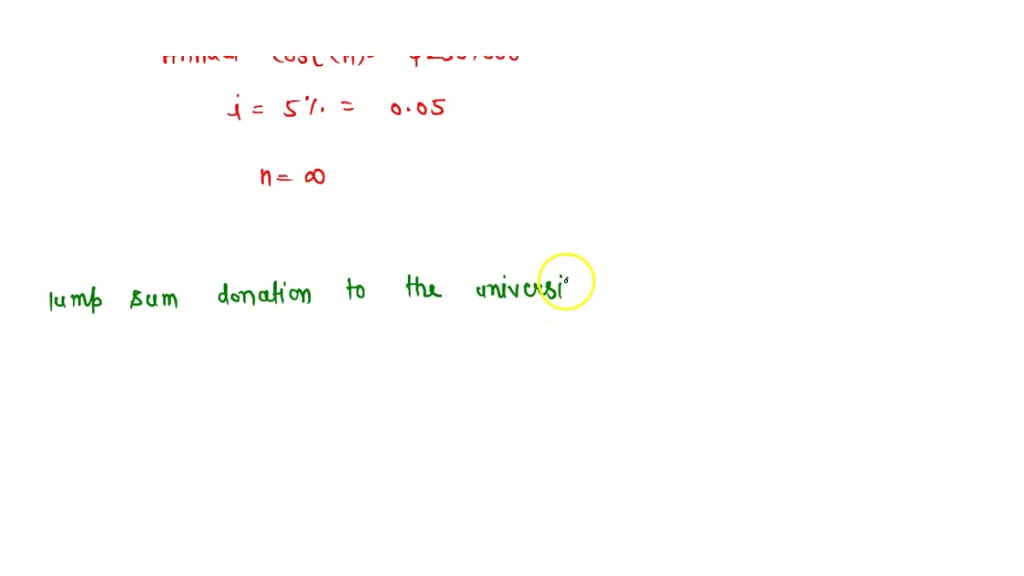 i = 5% = 0.05
n = ∞
lump sum donation to the universi